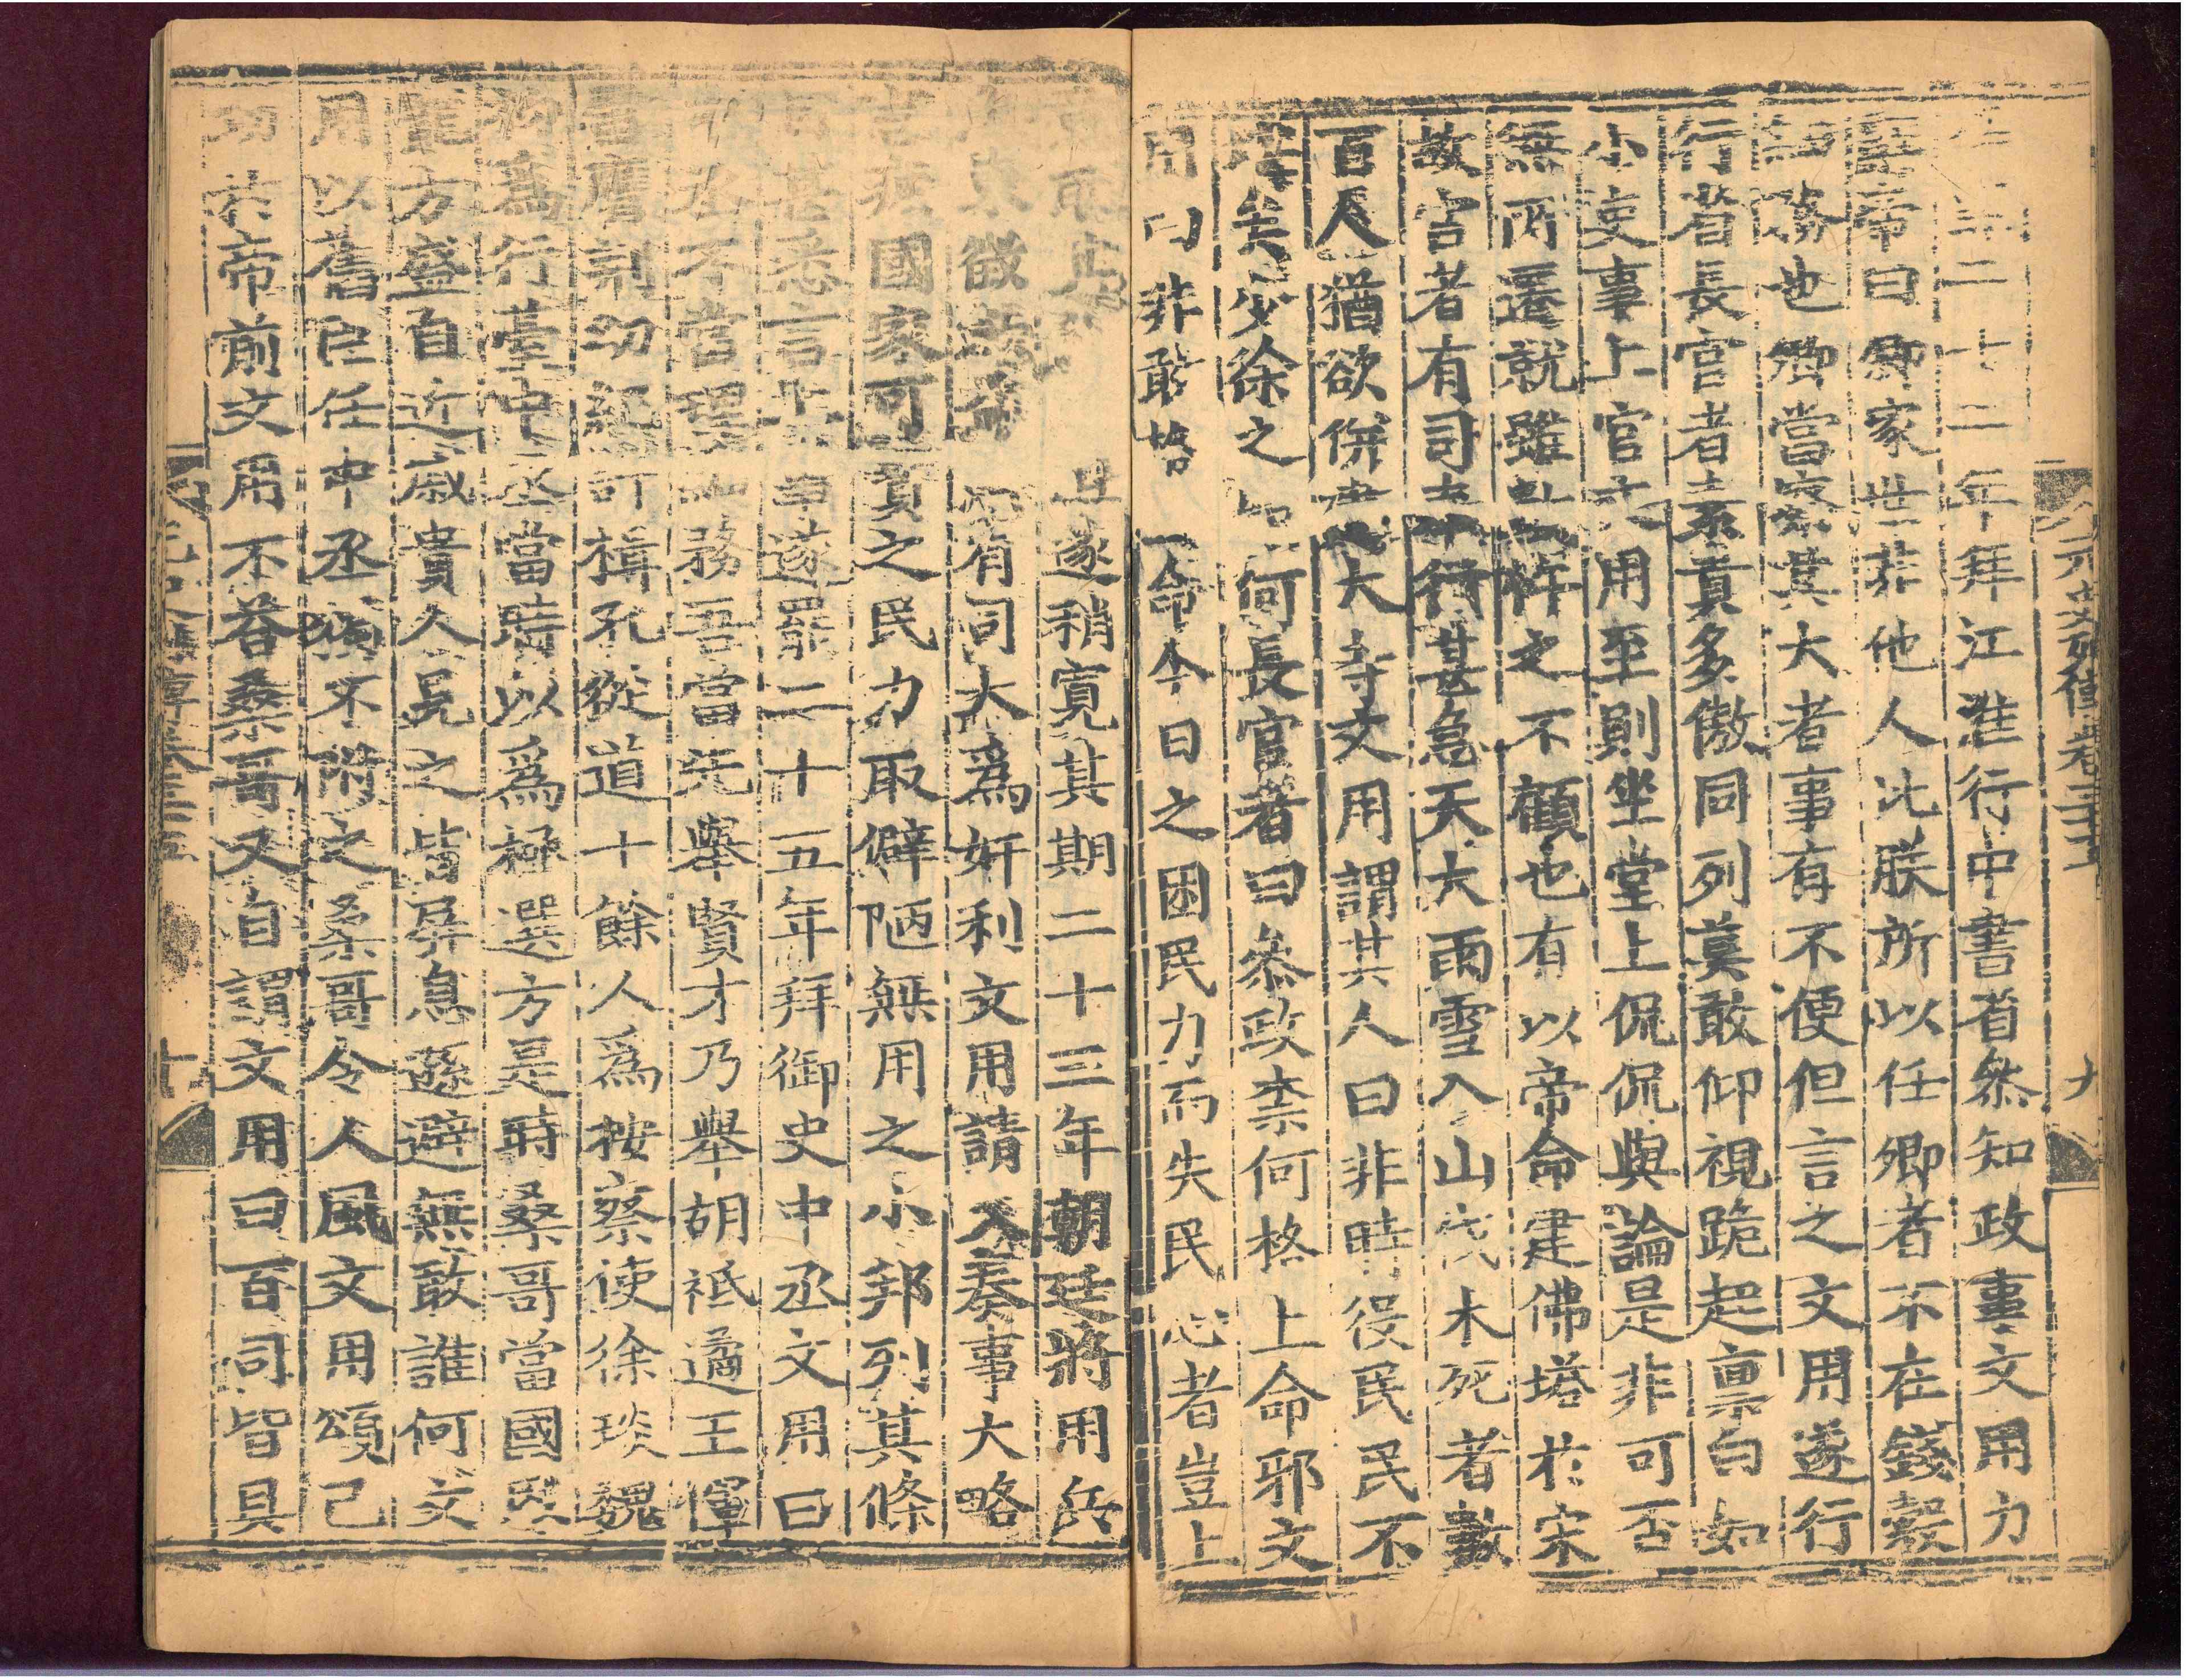 元史列傳卷三十五
九
二十二年拜江淮行中書省叅知政事文用力
辭帝曰卿家世非他人比朕所以任卿者不在錢穀
細務也卿當察其大者事有不便但言之文用遂行
行省長官者素貴多傲同列莫敢仰視跪起稟白如
小吏事上官文用至則坐堂上侃侃與論是非可否
無所遷就雖數忤之不顧也有以帝命建佛塔於宋
故宮者有司奉行甚急天大雨雪入山伐木死者數
百人猶欲併建大寺文用謂其人曰非時役民民不
堪矣少徐之如何長官者曰叅政柰何格上命邪文
用曰非敢格上命今日之困民力而失民心者豈上
意耶其人意沮遂稍寬其期二十三年朝廷將用兵
海東徵斂益急有司大爲奸利文用請入奏事大略
言疲國家可寶之民力取僻陋無用之小邦列其條
目甚悉言上事遂罷二十五年拜御史中丞文用曰
中丞不當理細務吾當先舉賢才乃舉胡祗遹王惲
雷膺荆幼紀許楫孔從道十餘人爲按察使徐琰魏
初爲行臺中丞當時以爲極選方是時桑哥當國恩
寵方盛自近戚貴人見之皆屏息遜避無敢誰何文
用以舊臣任中丞獨不附之桑哥令人風文用頌己
功於帝前文用不荅桑哥又自謂文用曰百司皆具
元史列傳卷三十五
十